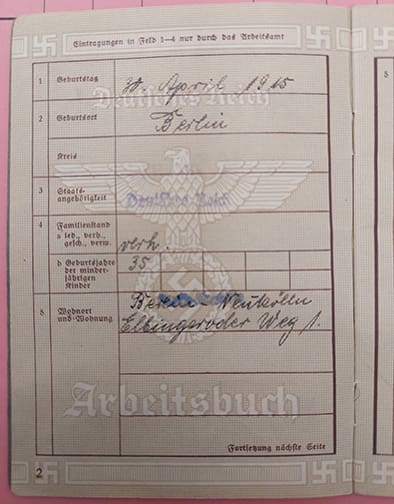 Eintragungen in Feld 1–4 nur durch das Arbeitsamt
1 Geburtstag 30. April 1915
Deutsches Reich
2 Geburtsort Berlin
Kreis
3 Staats-
angehörigkeit Deutsches Reich
4 Familienstand
a led., verh.,
gesch., verw. verh.
b Geburtsjahre
der minder-
jährigen
Kinder 35
5 Wohnort
und Wohnung Berlin-Neukölln
Elbingeroder Weg 1.
Arbeitsbuch
Fortsetzung nächste Seite
2